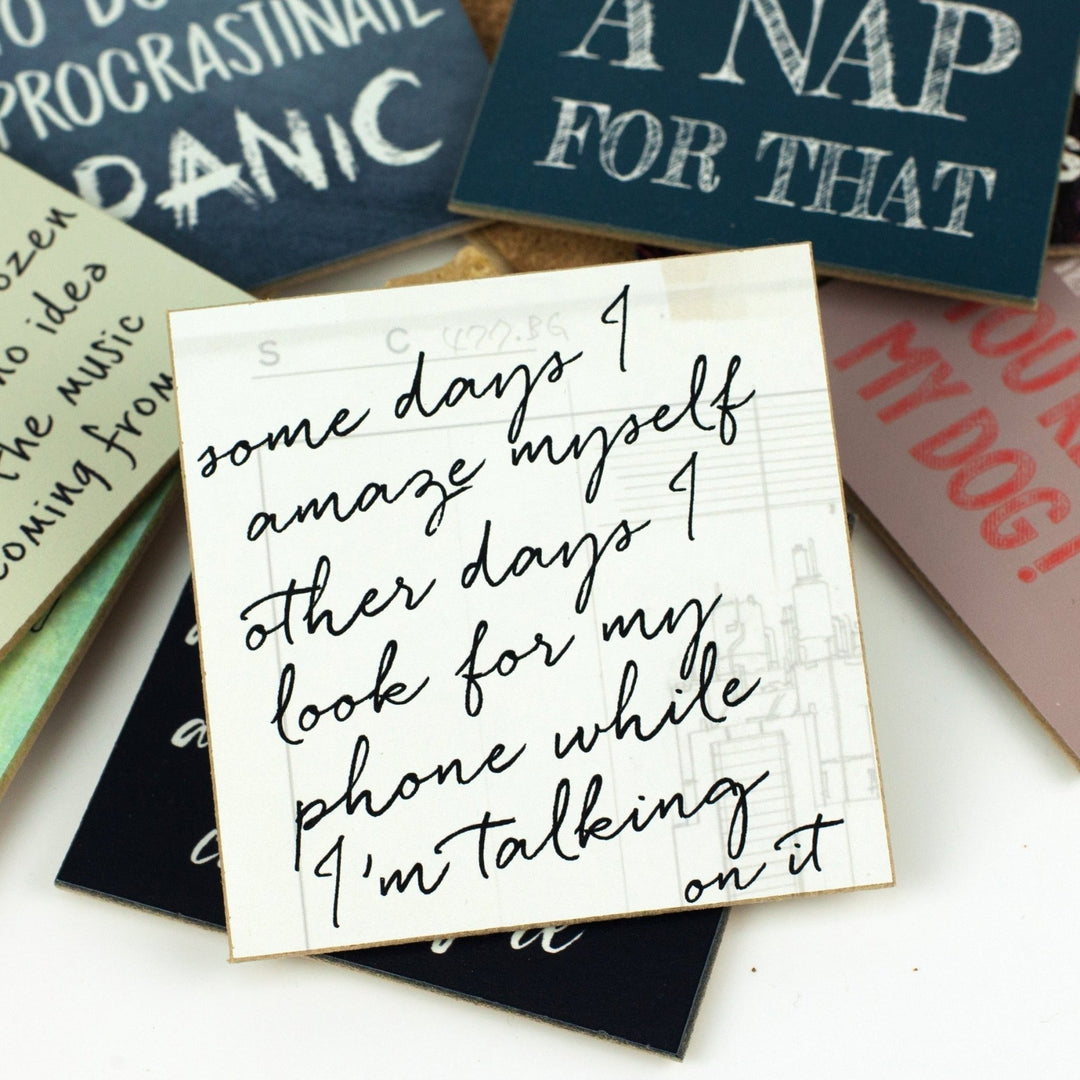 PROCRASTINATE
PANIC
A NAP
FOR THAT
no idea
the music
coming from
MY DOG!
S C 477.86
some days I
amaze myself
other days I
look for my
phone while
I'm talking
on it